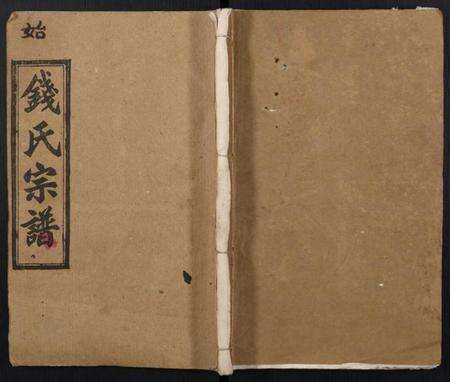 始
錢氏宗譜